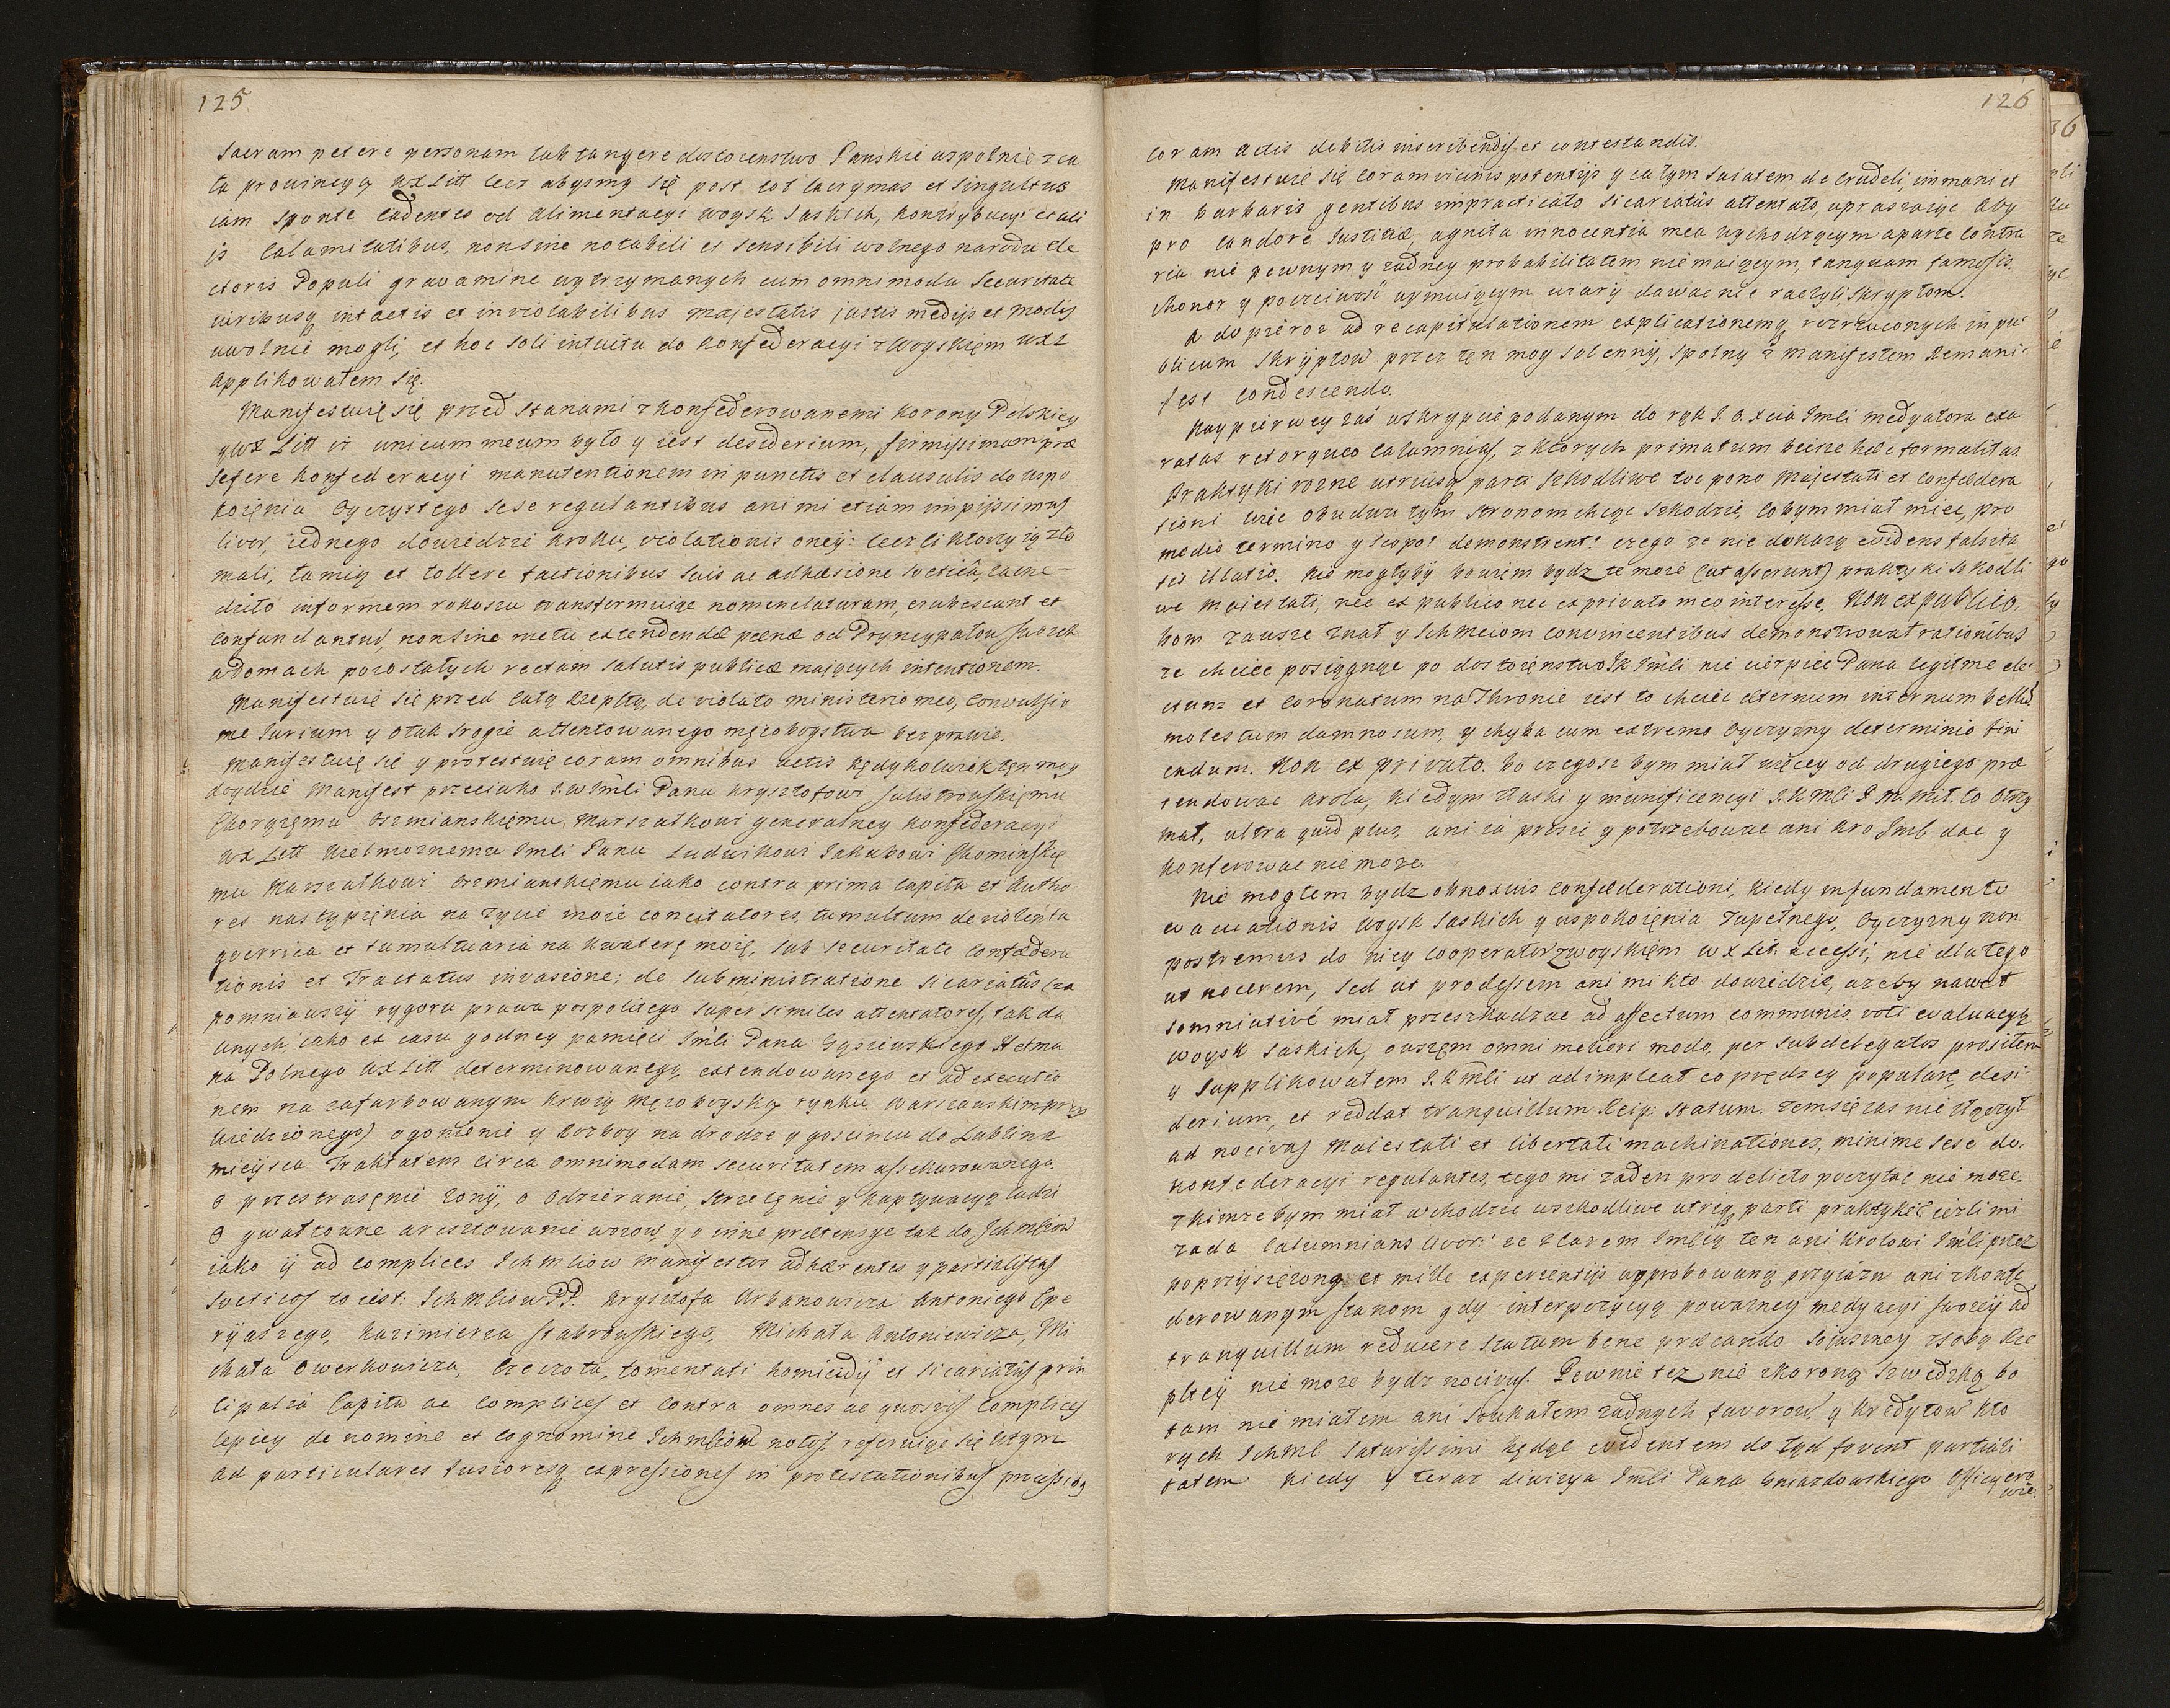 125
sacram petere personam lub tangere dostoienstwo Panskie wspolnie z ca
łą prowincyą WXLitt lecz abysmy się post tot lacrymas et singultus
iam sponte cadentes od alimentacyi woysk saskich, kontrybucyi et ali
is calamitatibus, non sine notabili et sensibili wolnego narodu ele
ctoris Populi gravamine wytrzymanych cum omnimoda securitate
viribusq intactis et inviolabilibus majestatis justis medijs et modis
uwolnić mogli, et hoc soli intuitu do Konfederacyi z Woyskięm WXL
applikowałem się.
Manifestuię się przed Stanami z Konfederowanemi Korony Polskiey
y WX Litt iż unicum meum było y iest desiderium, firmissimam præ
seferre Konfederacyi manutentionem in punctis et clausulis do uspo
koięnia Oyczystego sese regulantibus ani mi etiam impijssimus
livor, iednego dowiedzie kroku, violationis oney: lecz ci ktorzy ią zła
mali, łamią et tollere factionibus suis ac adhæsione svetica, zacne
dzito informem rokoszu transformuiąc nomenclaturam, erubescant et
confundantur, non sine metu extendendæ pœnæ od Pryncypałow swoich
w domach pozostałych rectam salutis publicæ maiących intentionem.
Manifestuię się przed całą Rzepltą, de violato ministerio meo, convulsio
ne Jurium y o tak srogie attentowanego męzoboystwa bezprawie.
Manifestuię się y protestuię coram omnibus actis kędykolwiek tęn moy
doydzie Manifest przeciwko J.W Jmći Panu Krysztofowi Sulistrowskięmu
Chorązęmu Oszmianskięmu, Marszałkowi generalney Konfederacyi
WX Litt Wielmoznemu Jmći Panu Ludwikowi Jakubowi Chominskię
mu Marszałkowi Oszmianskięmu iako contra prima capita et Autho
res nastąpięnia na zycie moie concitatores, tumultum de violenta
guerrica et tumultuaria na kwaterę moię, sub securitate Confœdera
tionis et Tractatus invasione; de subministratione sicariatûs (za
pomniawszy rygoru prawa pospolitego super similes attentatores, tak da
wnych, iako ex casu godney pamięci Jmći Pana Gąsiewskiego Hetma
na Polnego WX Litt determinowanego, extendowanego et ad executio
nem na zafarbowanym krwią męzoboyską rynku Warszawskim przy
wiedzionego) ogonienie y rozboy na drodze y goscincu do Lublina
mieysca Traktatem circa omnimodam securitatem assekurowanego.
O przestraszęnie zony, o odzieranie, strzelęnie y kaptywacyą ludzi
O gwałtowne aresztowanie wozow, y o inne prætensye tak do Jchmćiow
iako y ad complices Jchmćiow manifestor adhærentes y partialistas
sveticos to iest: Jchmćiow PP. Krysztofa Urbanowicza Antoniego Cpe
ryaszego, Kazimierza Stabrowskiego, Michała Antoniewicza, Mi
chała Owerkowicza, Czeczota, tomentati homicidij et sicariatûs prin
cipalia Capita ac complices et contra omnes ac quosvis complices
lepiey de nomine et cognomine Jchmćiom notos, referuiąc się w tym
ad particulares fusioresq expressiones in protestationibus processibq
126
coram actis debitis inscribendis et contestandis.
Manifestuię się coram vicinis potentijs y całym swiatem de crudeli, immani et
in barbaris gentibus impracticato sicariatûs attentato, upraszaiąc aby
pro candore Justitiæ, agnita innocentia mea wychodzącym aparte contra
ria nie pewnym y zadney probabilitatem nie maiącym, tanquam famosis,
honor y poczciwość uymuiącym wiary dawac nie raczyli skryptom.
A dopieroz ad recapitulationem explicationemq rozrzuconych in pu
blicum Skryptow przez tęn moy solenny, spolny z manifestem Remani
fest condescendo.
Naypierwey zaś w skrypcie podanym do rąk J. O. Xcia Jmći medyatora exa
ratas retorqueo calumnias, z ktorych primatum bierze hæc formalitas.
Praktyki rozne utriusq parti szkodliwe toe pono Majestati et Confœdera
tioni więc obudwu tym stronom chcąc szkodzić, cobym miał mieć, pro
medio termino y scopo: demonstrent: czego ze nie dokazą evidens falsita
tis illatio. Nie mogłyby bowiem bydz te moie (ut asserunt) praktyki szkodli
we majestati, nec ex publico nec ex privato meo interesse. Non ex publico,
bom zawsze znał y Jchmciom convincentibus demonstrował rationibus
ze chcieć posiągnąc po dostoięnstwo JK Jmći nie cierpieć Pana legitime ele
ctum et coronatum na Thronie iest to chcieć æternum internum bellũ
molestum damnosum, y chyba cum extremo Oyczyzny determinio fini
endum. Non ex privato. bo czegosz bym miał więcey od drugiego præ
tendowac krola, kiedym z łaski y munificencyi J.K Mći P. M. Mił. to otrzy
mał, ultra quid plus, ani ia prosić y potrzebowac ani Kro Jmć dac y
konferowac nie moze.
Nie mogłem bydz obnoxius confœderationi, kiedy in fundamento
evacuationis Woysk Saskich y uspokoięnia zupełnego, Oyczyzny non
postremus do niey cooperator z woyskięm WX Lit. accessi, nie dlatego
ut nocerem, sed ut prodessem ani mi kto dowiedzie, azeby nawet
somniativè miał przeszkadzac ad effectum communis voti evaluacyą
woysk saskich, owszęm omni meliori modo, per subdelegatos prosiłem
y supplikowałem J.K Mći ut adimpleat co prędzey populare desi
derium, et reddat tranquillum Reip: Statum. Zem się zas nie złączył
ad nocivas Maiestati et libertati machinationes, minime sese do
konfederacyi regulantes, tego mi zaden pro delicto poczytac nie moze.
z kimze bym miał wchodzic w szkodliwe utriq parti praktyki? iezli mi
zada calumnians livor: ze z Carem Jmćią ten ani krolowi Jmći przez
poprzysięzoną et mille experientijs approbowaną przyiazn ani z Konfe
derowanym Stanom gdy interpozycyą powazney medyacyi swoiey ad
tranquillum reducere statum bene precando sojuszney z sobą Rze
pltey nie moze bydz nocivus. Pewnie tez nie z Koroną Szwedzką bo
tam nie miałem ani szukałem zadnych faworow y kredytow kto
rych Jchmć saturissimi kędyś evidentem do tąd fovent partiali
tatem kiedy y teraz diwizya Jmći Pana Gniazdowskiego Officyero
wie.